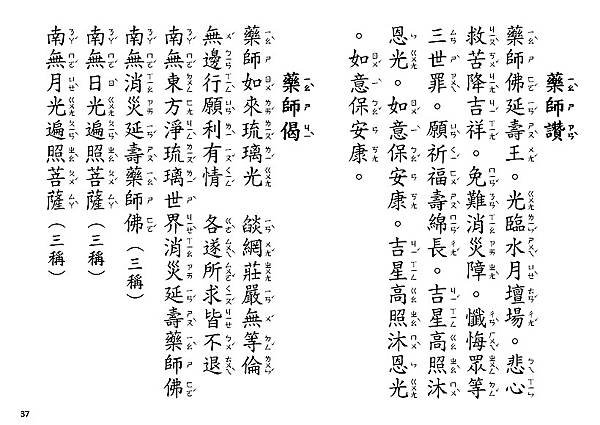 藥師讚
藥師佛延壽王。光臨水月壇場。悲心
救苦降吉祥。免難消災障。懺悔眾等
三世罪。願祈福壽綿長。吉星高照沐
恩光。如意保安康。吉星高照沐恩光
。如意保安康。
藥師偈
藥師如來琉璃光 燄網莊嚴無等倫
無邊行願利有情 各遂所求皆不退
南無東方淨琉璃世界消災延壽藥師佛
南無消災延壽藥師佛(三稱)
南無日光遍照菩薩(三稱)
南無月光遍照菩薩(三稱)
37